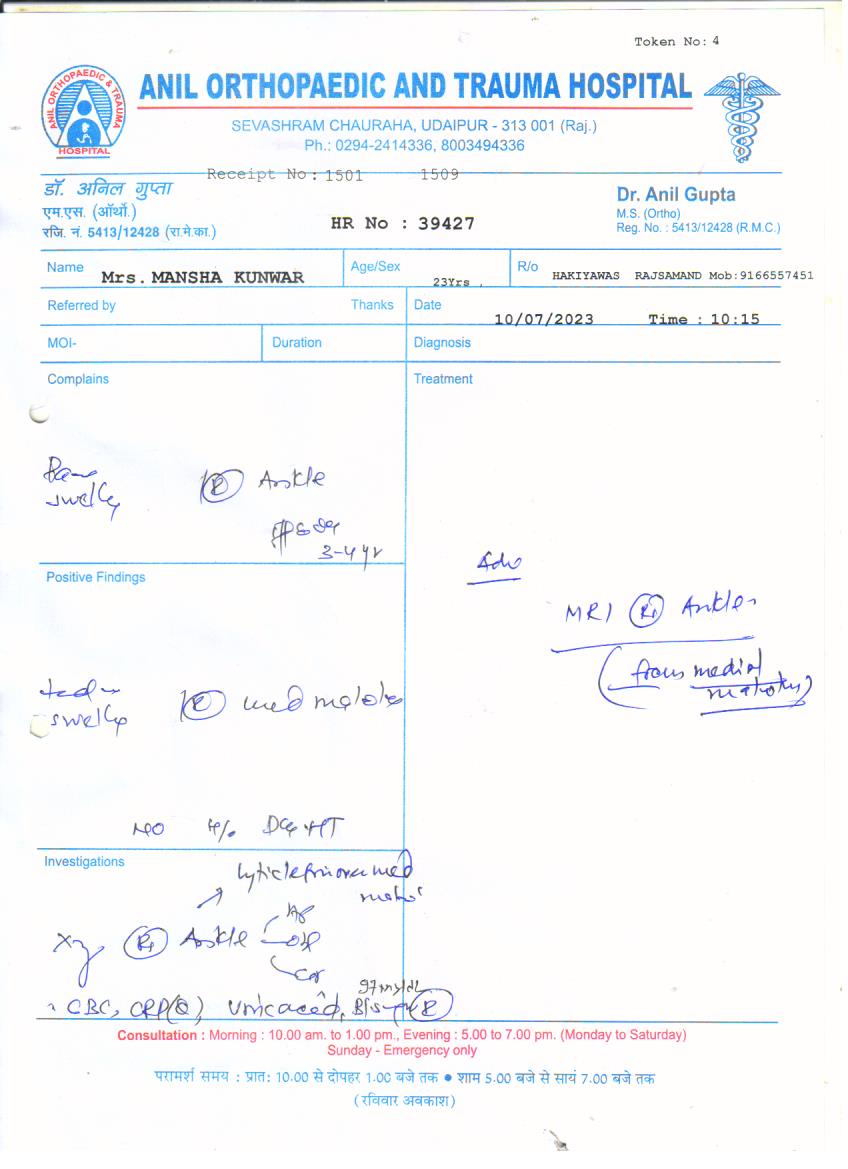 Token No: 4
ANIL ORTHOPAEDIC & TRAUMA
HOSPITAL
ANIL ORTHOPAEDIC AND TRAUMA HOSPITAL
SEVASHRAM CHAURAHA, UDAIPUR - 313 001 (Raj.)
Ph.: 0294-2414336, 8003494336
Receipt No: 1501 1509
डॉ. अनिल गुप्ता
एम.एस. (ऑर्थो.)
रजि. नं. 5413/12428 (रा.मे.का.)
HR No : 39427
Dr. Anil Gupta
M.S. (Ortho)
Reg. No. : 5413/12428 (R.M.C.)
Name Mrs. MANSHA KUNWAR Age/Sex 23Yrs , R/o HAKIYAWAS RAJSAMAND Mob:9166557451
Referred by Thanks Date 10/07/2023 Time : 10:15
MOI- Duration Diagnosis
Complains Treatment
swelly Ⓡ Ankle
3-4 yr
Positive Findings
Adv
MRI Ankle
medial
swelly Ⓡ med
NO
Investigations
med
Ankle
97 mg/dL
CBC, CRP
Consultation : Morning : 10.00 am. to 1.00 pm., Evening : 5.00 to 7.00 pm. (Monday to Saturday)
Sunday - Emergency only
परामर्श समय : प्रात: 10.00 से दोपहर 1.00 बजे तक ● शाम 5.00 बजे से सायं 7.00 बजे तक
(रविवार अवकाश)